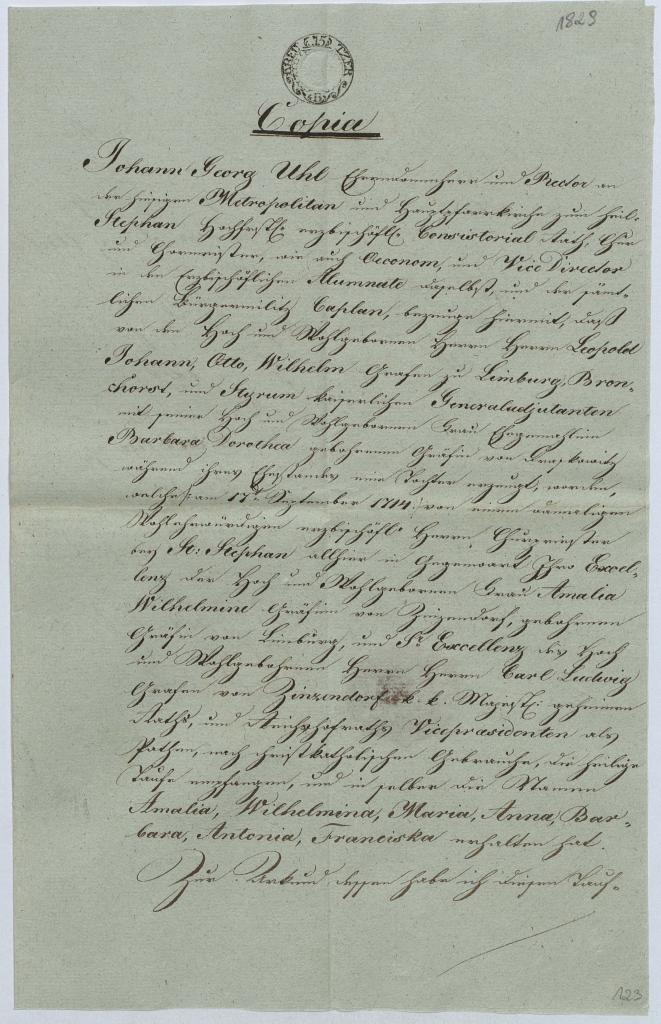 1823
15
Copia
Johann Georg Uhl Ehrendomherr und Rector an
der hiesigen Metropolitan und Hauptpfarrkirche zum heil.
Stephan Hochfrstl. erzbischöfl. Consistorial Rath, Chur
und Chormeister, wie auch Oeconom, und Vice Director
in dem Erzbischöflichen Alumnate daselbst, und der sämt-
lichen Bürgermilitz Caplan, bezeuge hiermit, daß
von den Hoch und Wohlgebornen Herrn Herrn Leopold
Johann, Otto, Wilhelm Grafen zu Limburg, Bron-
chorst, und Styrum kaiserlichen Generaladjutanten
mit seiner Hoch und Wohlgebornen Frau Ehegemahlin
Barbara Dorothea gebohrenen Gräfin von Draskowitz
während ihres Ehestandes eine Tochter erzeugt, worden,
welche /: am 17t. September 1714 :/ von einem damaligen
Wohlehrwürdigen erzbischöfl. Herrn Churpriester
bey St: Stephan allhier in Gegenwart Ihro Excel-
lenz der Hoch und Wohlgebornen Frau Amalia
Wilhelmine Gräfin von Zinzendorf, gebohrenen
Gräfin von Limburg, und Sr. Excellenz des Hoch
und Wohlgebohrnen Herrn Herrn Carl Ludwig
Grafen von Zinzendorf k. k. Majestt: geheimen
Raths, und Reichshofraths Vicepräsidenten als
Pathen, nach christkatholischen Gebrauche, die heilige
Taufe empfangen, und in selber die Namen
Amalia, Wilhelmina, Maria, Anna, Bar-
bara, Antonia, Franciska erhalten hat.
Zur Urkund dessen habe ich diesen Tauf-
123